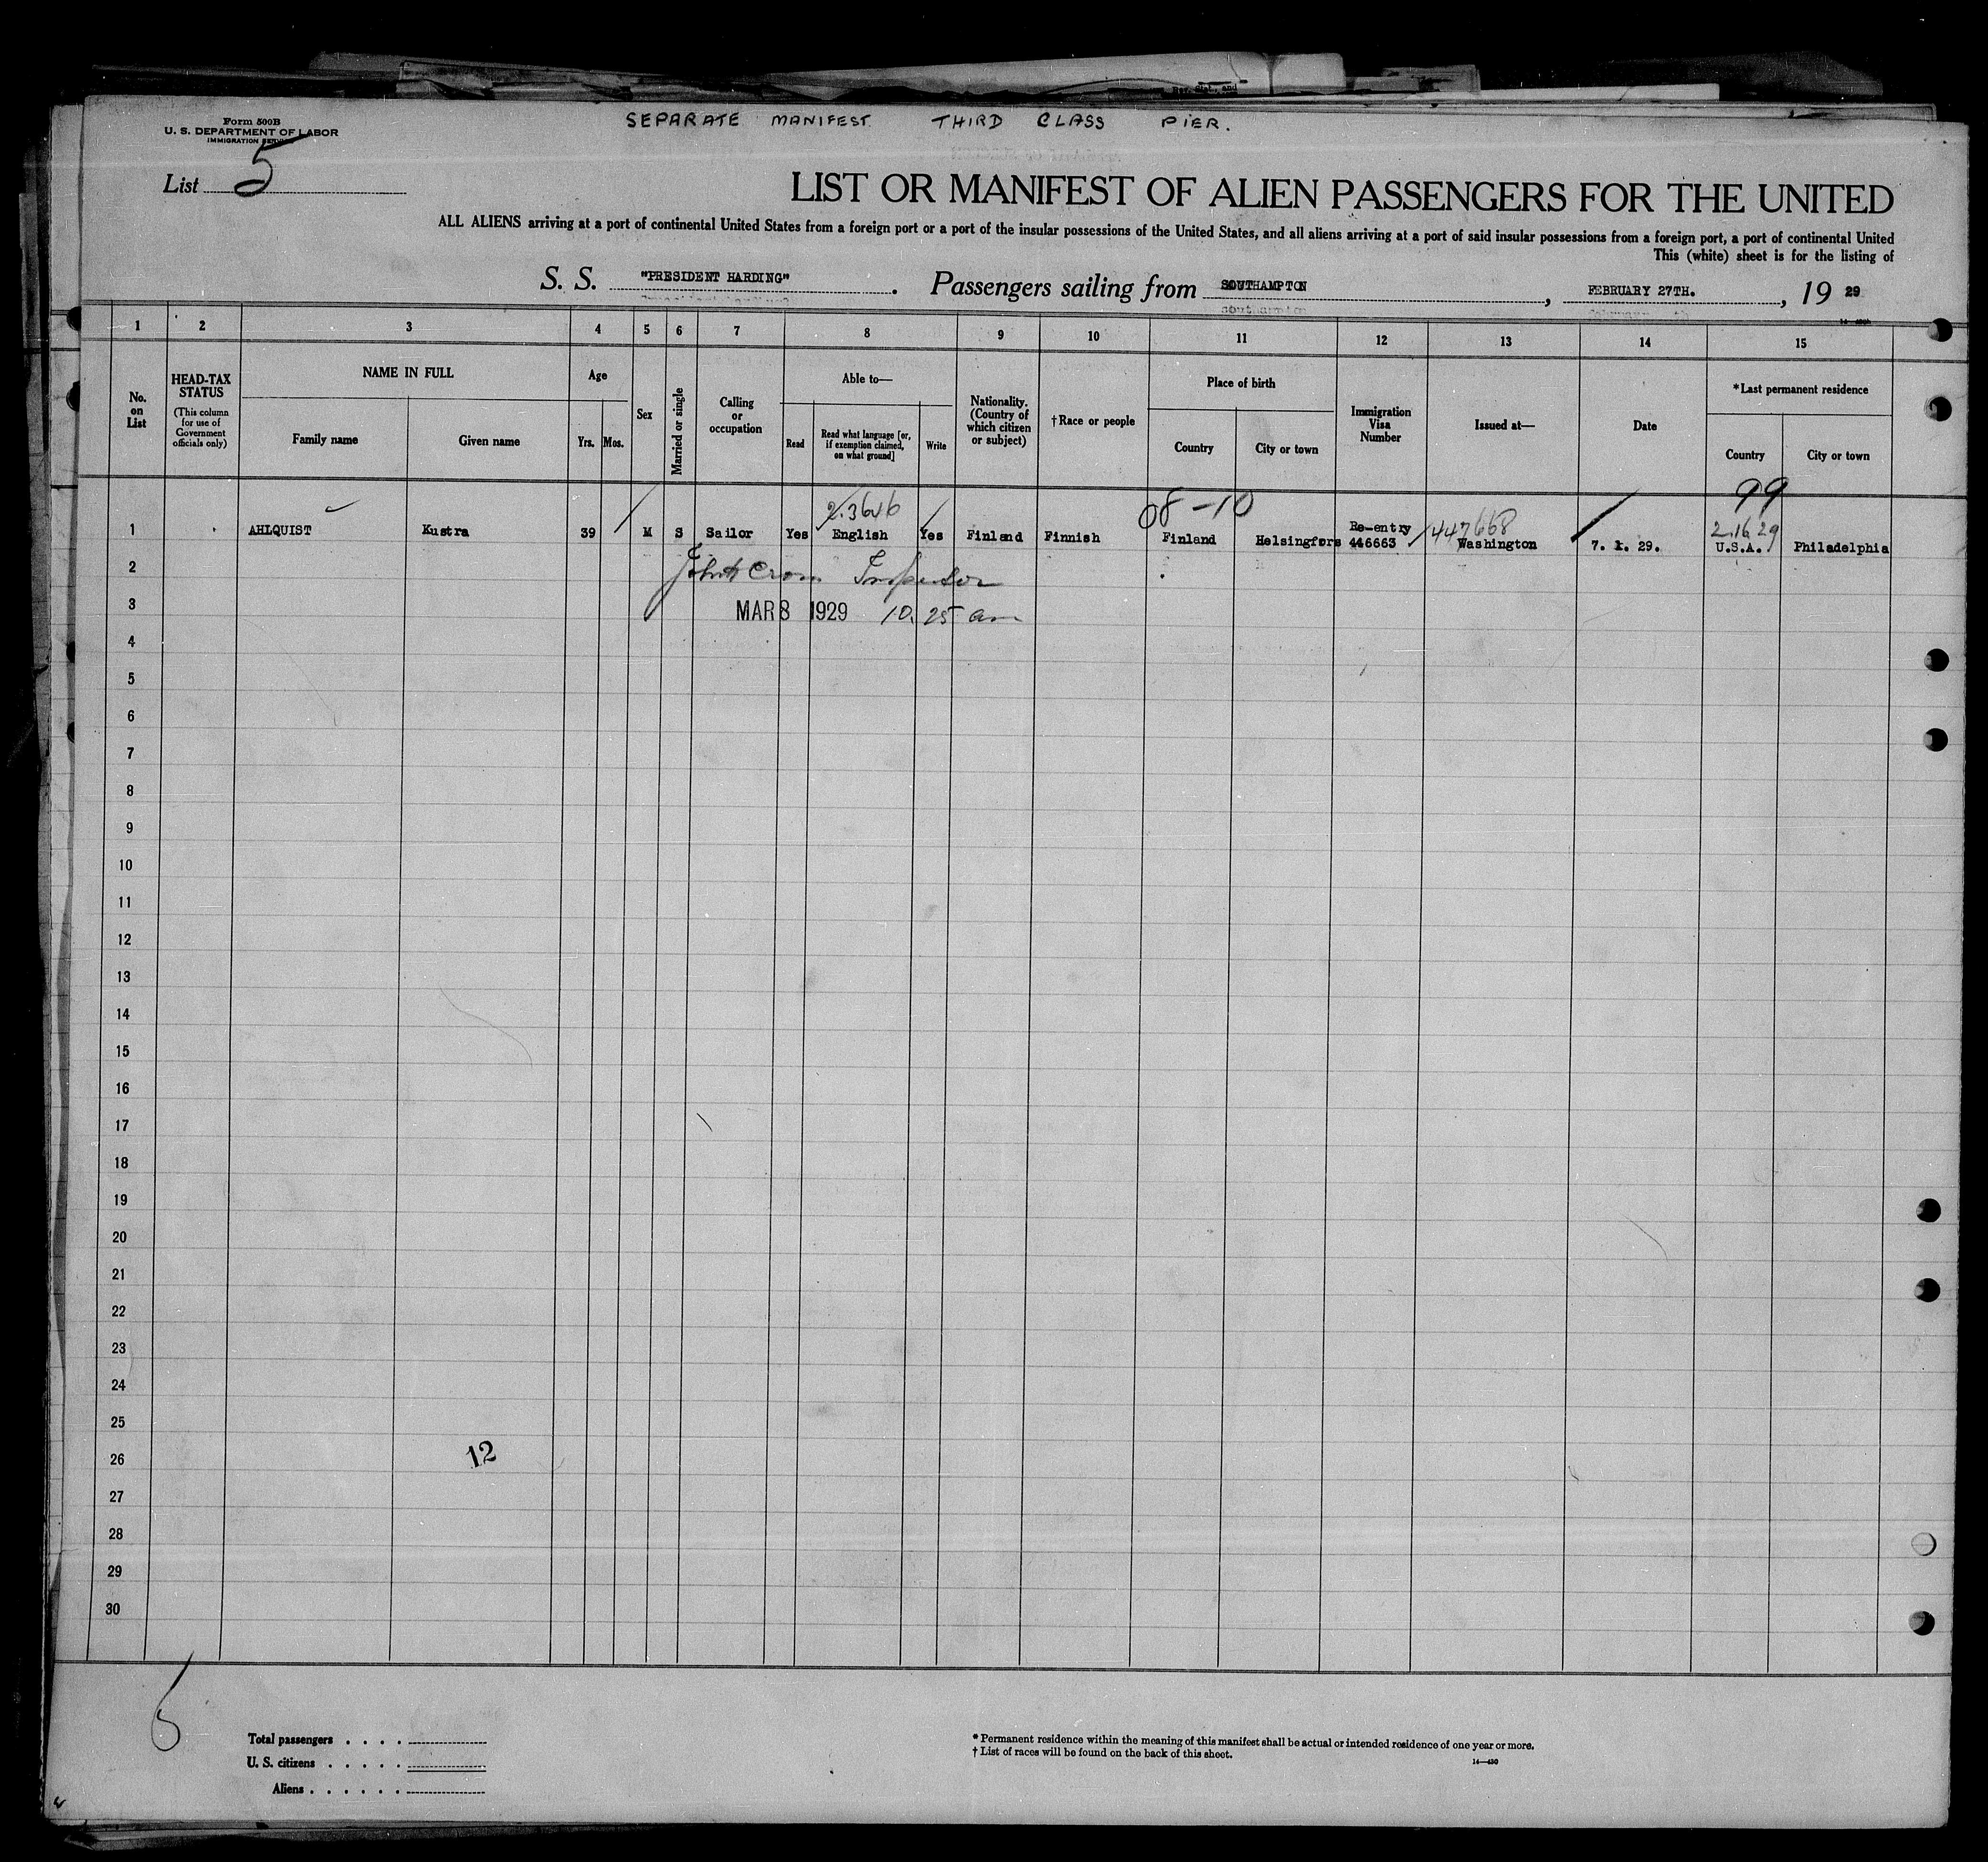 Form 500B
U. S. DEPARTMENT OF LABOR
IMMIGRATION SERVICE
SEPARATE MANIFEST THIRD CLASS PIER.
List 5
LIST OR MANIFEST OF ALIEN PASSENGERS FOR THE UNITED
ALL ALIENS arriving at a port of continental United States from a foreign port or a port of the insular possessions of the United States, and all aliens arriving at a port of said insular possessions from a foreign port, a port of continental United
This (white) sheet is for the listing of
S. S. "PRESIDENT HARDING". Passengers sailing from SOUTHAMPTON, FEBRUARY 27TH., 19 29
1 2 3 4 5 6 7 8 9 10 11 12 13 14 15
No. on List
HEAD-TAX STATUS
(This column for use of Government officials only)
NAME IN FULL
Family name
Given name
Age
Yrs. Mos.
Sex
Married or single
Calling or occupation
Able to—
Read
Read what language [or, if exemption claimed, on what ground]
Write
Nationality. (Country of which citizen or subject)
†Race or people
Place of birth
Country
City or town
Immigration Visa Number
Issued at—
Date
*Last permanent residence
Country
City or town
08-10
99
447668
2.16.29
1 AHLQUIST Kustra 39 M S Sailor Yes English Yes Finland Finnish Finland Helsingfors Re-entry 446663 Washington 7. 1. 29. U.S.A. Philadelphia
2 Inspector
3 MAR 8 1929 10.25 am
4
5
6
7
8
9
10
11
12
13
14
15
16
17
18
19
20
21
22
23
24
25
26 12
27
28
29
30
Total passengers . . . .
U. S. citizens . . . . .
Aliens . . . . . .
* Permanent residence within the meaning of this manifest shall be actual or intended residence of one year or more.
† List of races will be found on the back of this sheet.
14—430